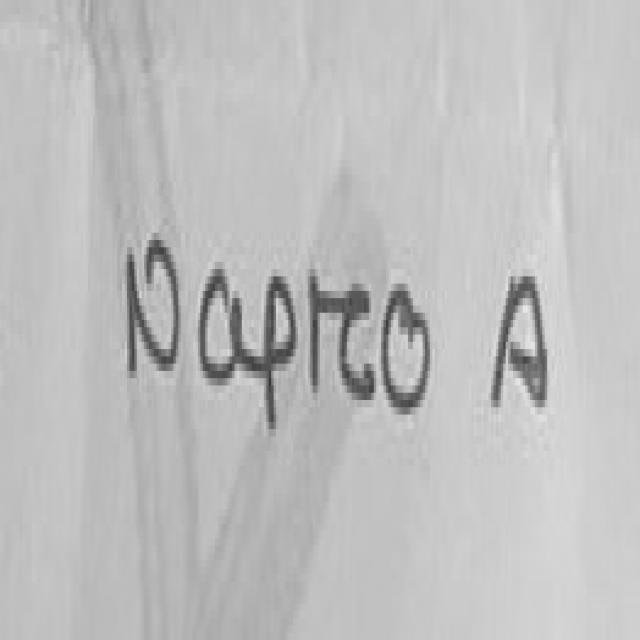 Napreo A